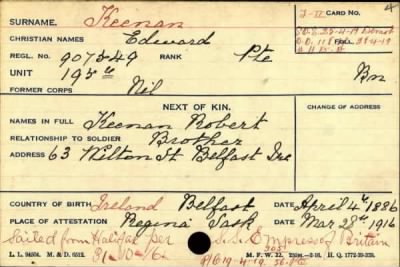 SURNAME. Keenan
CARD No. 4
CHRISTIAN NAMES Edward
REGL. No. 907549 RANK Pte
UNIT 195th Bn
FORMER CORPS Nil
NEXT OF KIN.
CHANGE OF ADDRESS
NAMES IN FULL Keenan Robert
RELATIONSHIP TO SOLDIER Brother
ADDRESS 63 Wilton St Belfast Ire
COUNTRY OF BIRTH Ireland Belfast DATE April 4th 1886
PLACE OF ATTESTATION Regina Sask DATE Mar 28th 1916
Sailed from Halifax per S.S. Empress of Britain
L. L. 94504. M. & D. 6512. M. F. W. 22.